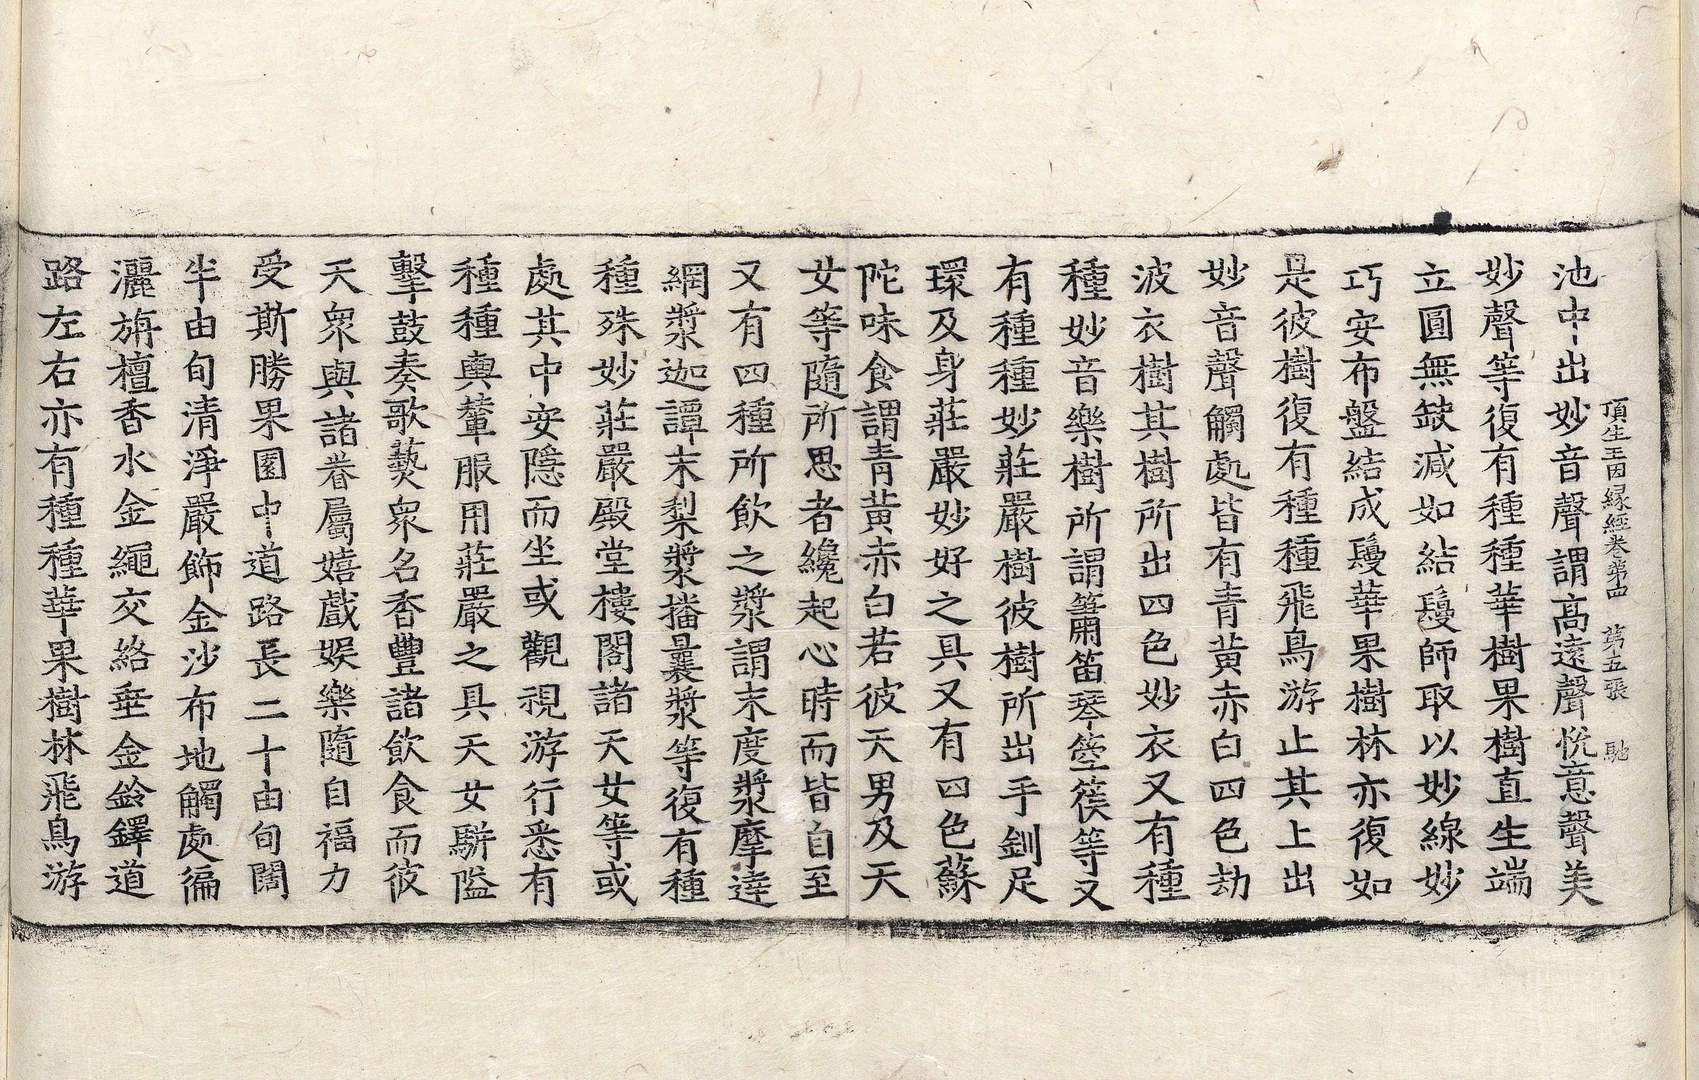 頂生王因縁經卷第四 第五張 馳
池中出妙音聲謂高遠聲悅意聲美
妙聲等復有種種華樹果樹直生端
立圓無缺減如結鬘師取以妙線妙
巧安布盤結成鬘華果樹林亦復如
是彼樹復有種種飛鳥游止其上出
妙音聲觸處皆有青黃赤白四色劫
波衣樹其樹所出四色妙衣又有種
種妙音樂樹所謂簫笛琴箜篌等又
有種種妙莊嚴樹彼樹所出手釧足
環及身莊嚴妙好之具又有四色蘇
陀味食謂青黃赤白若彼天男及天
女等隨所思者纔起心時而皆自至
又有四種所飲之漿謂末度漿摩達
網漿迦譚末梨漿播曩漿等復有種
種殊妙莊嚴殿堂樓閣諸天女等或
處其中安隱而坐或觀視游行悉有
種種輿輦服用莊嚴之具天女駢隘
擊鼓奏歌爇衆名香豐諸飲食而彼
天衆與諸眷屬嬉戲娛樂隨自福力
受斯勝果園中道路長二十由旬闊
半由旬清淨嚴飾金沙布地觸處徧
灑旃檀香水金繩交絡垂金鈴鐸道
路左右亦有種種華果樹林飛鳥游